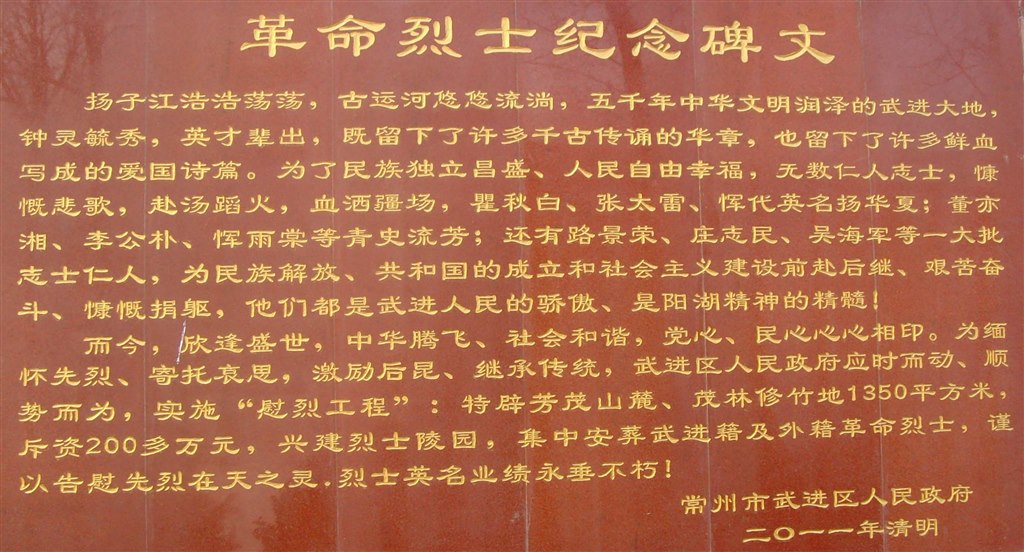 革命烈士纪念碑文
扬子江浩浩荡荡，古运河悠悠流淌，五千年中华文明润泽的武进大地，
钟灵毓秀，英才辈出，既留下了许多千古传诵的华章，也留下了许多鲜血
写成的爱国诗篇。为了民族独立昌盛、人民自由幸福，无数仁人志士，慷
慨悲歌，赴汤蹈火，血洒疆场，瞿秋白、张太雷、恽代英名扬华夏；董亦
湘、李公朴、恽雨棠等青史流芳；还有路景荣、庄志民、吴海军等一大批
志士仁人，为民族解放、共和国的成立和社会主义建设前赴后继、艰苦奋
斗、慷慨捐躯，他们都是武进人民的骄傲、是阳湖精神的精髓！
而今，欣逢盛世，中华腾飞、社会和谐，党心、民心心心相印。为缅
怀先烈、寄托哀思，激励后昆、继承传统，武进区人民政府应时而动、顺
势而为，实施“慰烈工程”：特辟芳茂山麓、茂林修竹地1350平方米，
斥资200多万元，兴建烈士陵园，集中安葬武进籍及外籍革命烈士，谨
以告慰先烈在天之灵.烈士英名业绩永垂不朽！
常州市武进区人民政府
二〇一一年清明